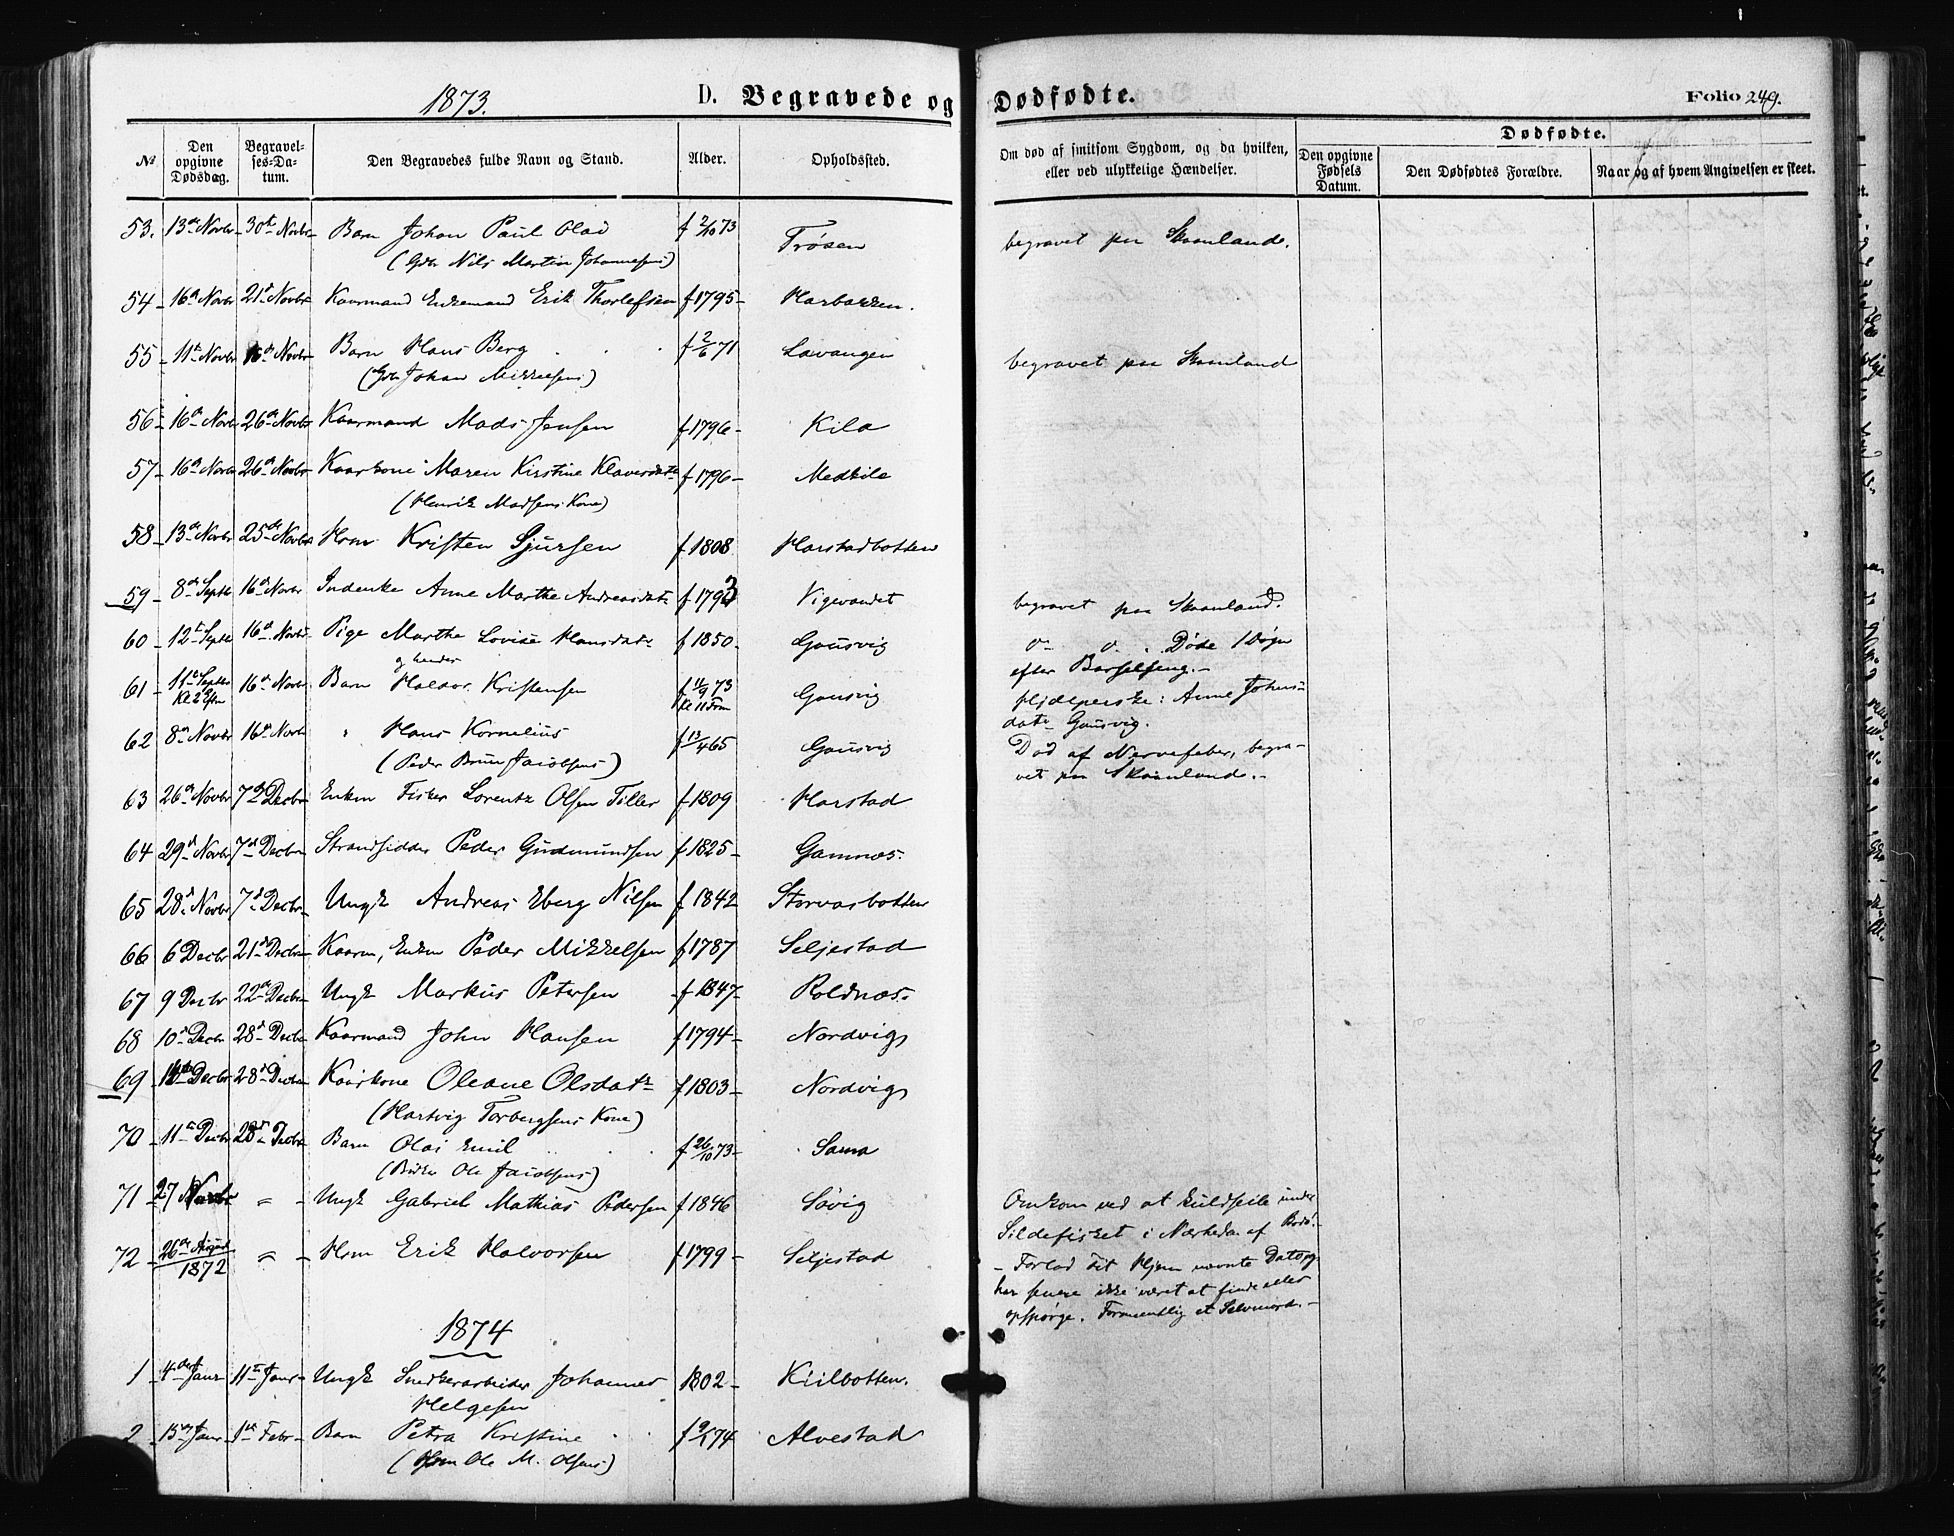 1873.
D. Begravede og Dødfødte.
Folio 249.
№
Den opgivne Dødsdag.
Begravelses-Datum.
Den Begravedes fulde Navn og Stand.
Alder.
Opholdssted.
Om død af smitsom Sygdom, og da hvilken, eller ved ulykkelige Hændelser.
Dødfødte.
Den opgivne Fødsels Datum.
Den Dødfødtes Forældre.
Naar og af hvem Angivelsen er skeet.
53. 13de Novbr 30te Novbr Barn Johan Paul Olai f 2/10 73 Trøsen begravet paa Skaanland.
(Gdbr Nils Martin Johannesens)
54 16de Novbr 21de Novbr Kaarmand Enkemand Erik Thorlefsen f 1795 Harbakken.
55 11te Novbr Novbr Barn Hans Berg f 2/6 71 Lavangen begravet paa Skaanland
(Gdbr Johan Mikkelsens)
56 16de Novbr 26de Novbr Kaarmand Mads Jensen f 1796 Kila
57 16de Novbr 26de Novbr Kaarkone Maren Kirstine Klausdatr f 1796 Medkila
(Henrik Madsens Kone)
58 13de Novbr 25de Novbr Hmn Kristen Sjursen f 1808 Harstadbotten
59 8de Septbr 16de Novbr Inderske Anne Marthe Andreasdatr f 1793 Vigevandet begravet paa Skaanland.
60 12te Septbr 16de Novbr Pige Marthe Lovise Hansdatr f 1850 Gausvig do do. Døde 1 Døgn
efter Barselseng.
61 11te Septbr Kl 2 Efm 16de Novbr Barn Halvor Kristensen f 11/9 73 Kl 11 Fm Gausvig Hjælperske: Anne Johns-
og hendes
datr Gausvig.
62 8de Novbr 16de Novbr " Hans Kornelius f 13/4 65 Gausvig Død af Nervefeber, begra-
(Peder Brun Jacobsens)
vet paa Skaanland.
63 26de Novbr 7de Decbr Enkm Fisker Lorentz Olsen Tiller f 1809 Harstad
64 29de Novbr 7de Decbr Strandsidder Peder Gudmundsen f 1825 Gamnæs.
65 28de Novbr 7de Decbr Ungk Andreas Eberg Nilsen f 1842 Storvasbotten
66 6 Decbr 21de Decbr Kaarm, Enkm Peder Mikkelsen f 1787 Seljestad
67 9 Decbr 22de Decbr Ungk Markus Petersen f 1847 Roldnæs.
68 10de Decbr 28de Decbr Kaarmand John Hansen f 1794 Nordvig
69 Decbr 28de Decbr Kaarkone Oleane Olsdatr f 1803 Nordvig
(Hartvig Torbergsens Kone)
70 11te Decbr 28de Decbr Barn Olai Emil f 26/10 73 Sama
(Ole Jacobsens)
71 27 Novbr " Ungk Gabriel Mathias Pedersen f 1846 Søvig Omkom ved at kuldseile under
Sildefisket i Nærheden af Bodø.
72 26de August 1872 " Hmn Erik Halvorsen f 1799 Seljestad Forlod sit Hjem nævnte Dato og
har senere ikke været at finde eller
opspørge. Formentlig et Selvmord.
1874
1 4de Janr 11te Janr Ungk Snedkerarbeider Johannes 1802 Kiilbotten.
Helgesen
2 15de Janr 1ste Febr Barn Petra Kristine f 9/1 74 Alvestad
(Hmn Ole M. Olsens)